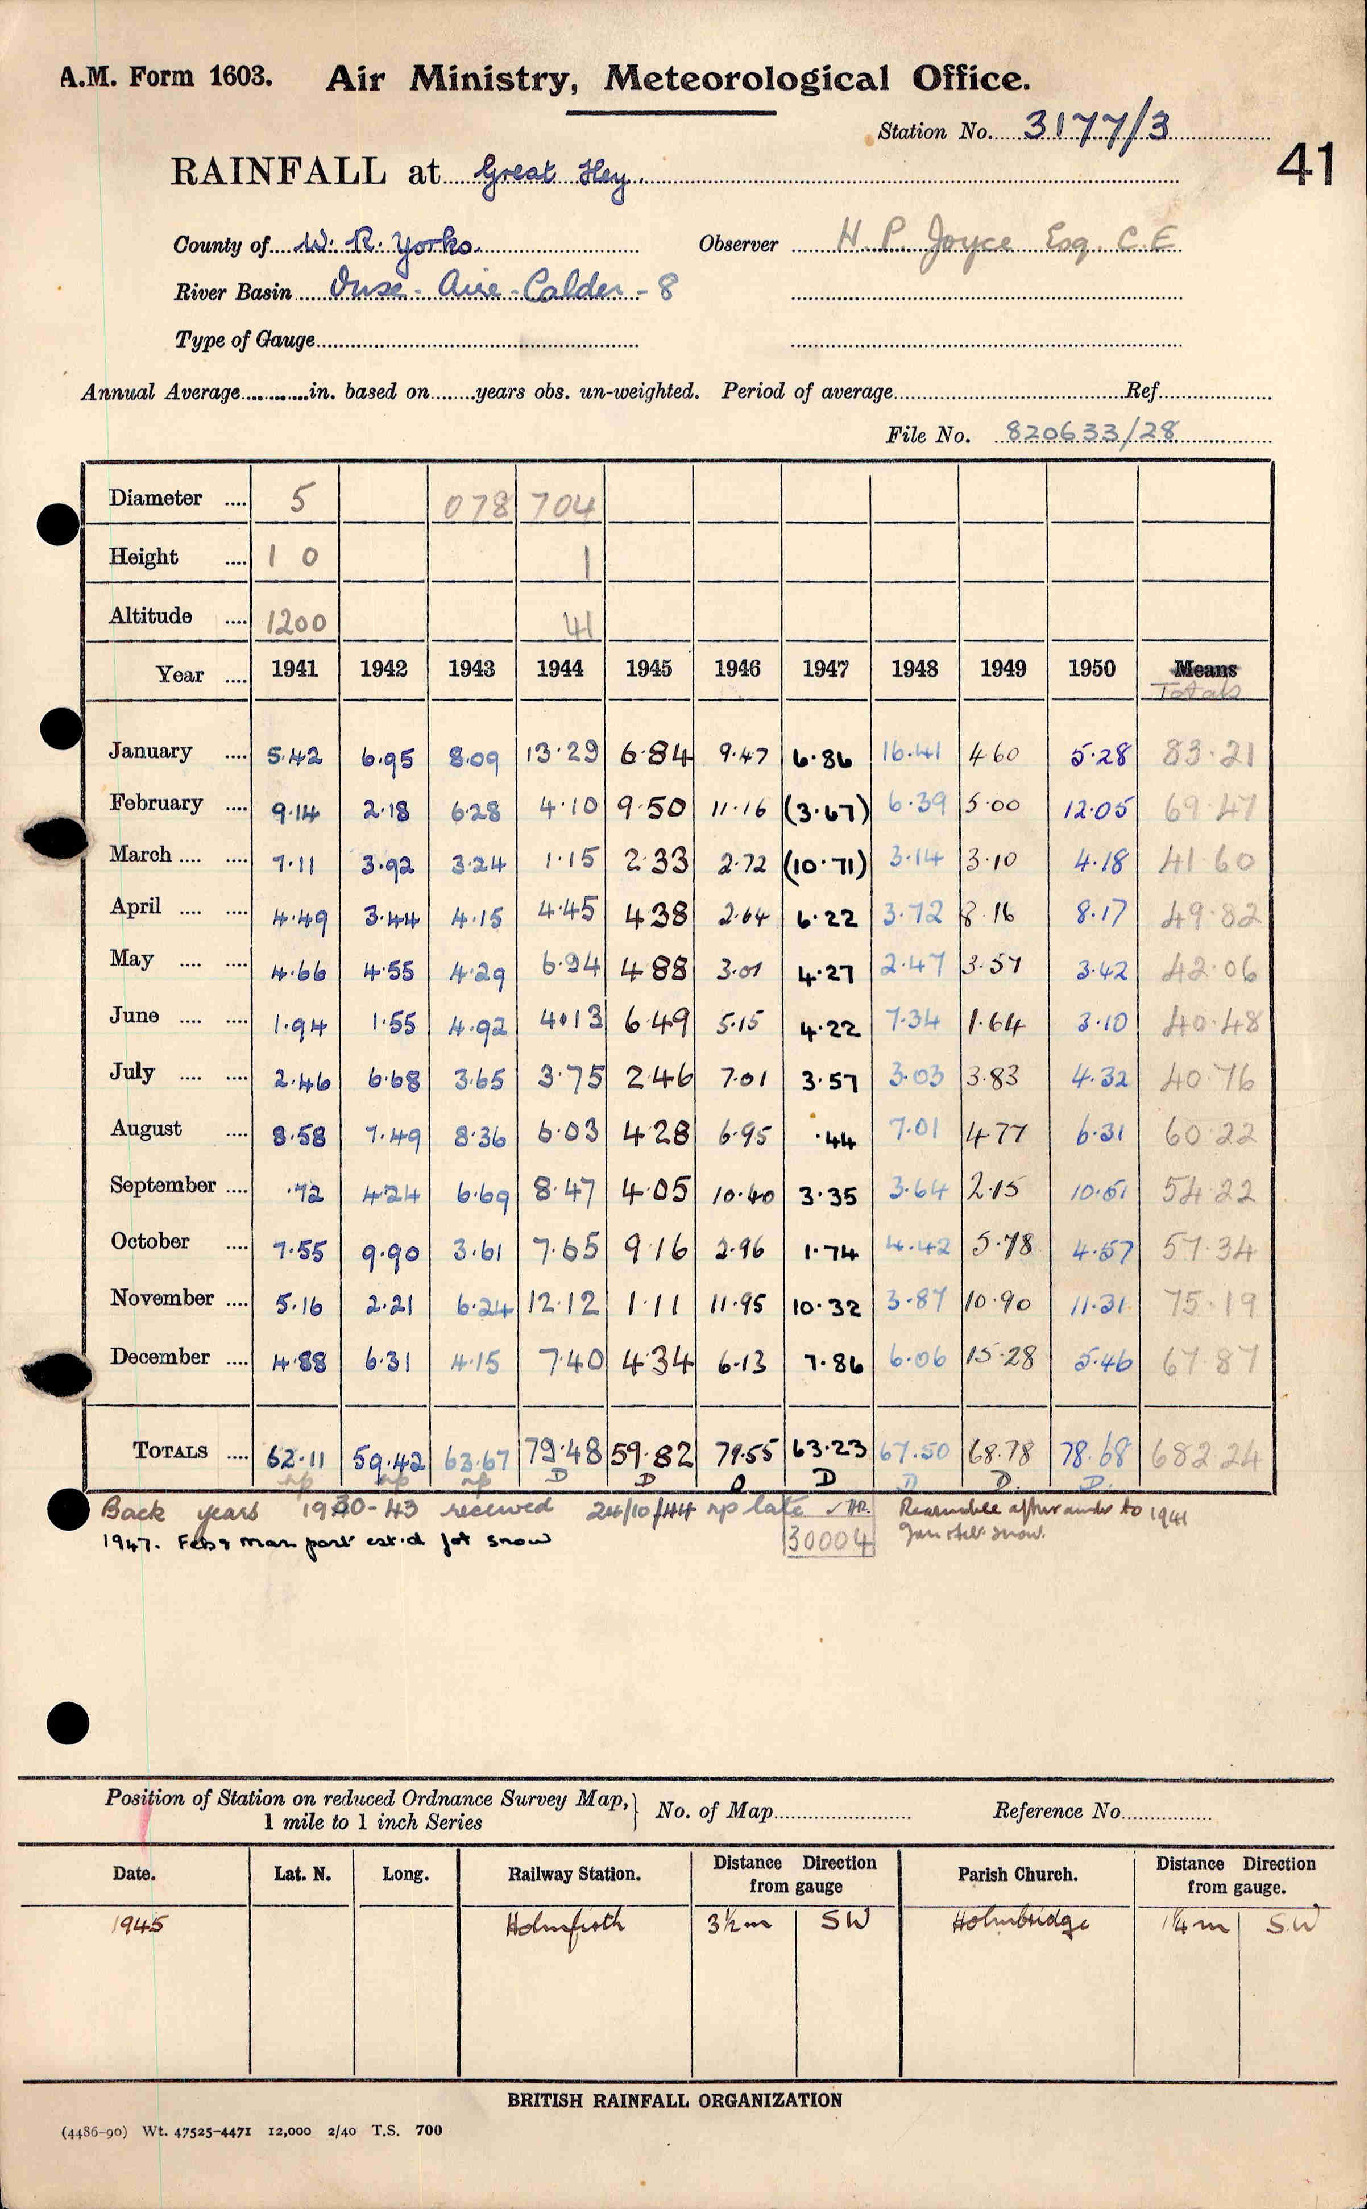 A.M. Form 1603. Air Ministry, Meteorological Office.
Station No. 3177/3
41
RAINFALL at Great Hey.
County of W. R. Yorks. Observer H. P. Joyce Esq. C.E
River Basin Ouse - Aire - Calder - 8
Type of Gauge
Annual Average in. based on years obs. un-weighted. Period of average Ref.
File No. 820633/28
Diameter 5 078 704
Height 1 0 1
Altitude 1200 41
Year 1941 1942 1943 1944 1945 1946 1947 1948 1949 1950 Means
Totals
January 5.42 6.95 8.09 13.29 6.84 9.47 6.86 16.41 4.60 5.28 83.21
February 9.14 2.18 6.28 4.10 9.50 11.16 (3.67) 6.39 5.00 12.05 69.47
March 7.11 3.92 3.24 1.15 2.33 2.72 (10.71) 3.14 3.10 4.18 41.60
April 4.49 3.44 4.15 4.45 4.38 2.64 6.22 3.72 8.16 8.17 49.82
May 4.66 4.55 4.29 6.94 4.88 3.01 4.27 2.47 3.57 3.42 42.06
June 1.94 1.55 4.92 4.13 6.49 5.15 4.22 7.34 1.64 3.10 40.48
July 2.46 6.68 3.65 3.75 2.46 7.01 3.57 3.03 3.83 4.32 40.76
August 8.58 7.49 8.36 6.03 4.28 6.95 .44 7.01 4.77 6.31 60.22
September .72 4.24 6.69 8.47 4.05 10.40 3.35 3.64 2.15 10.51 54.22
October 7.55 9.90 3.61 7.65 9.16 2.96 1.74 4.42 5.78 4.57 57.34
November 5.16 2.21 6.24 12.12 1.11 11.95 10.32 3.87 10.90 11.31 75.19
December 4.88 6.31 4.15 7.40 4.34 6.13 7.86 6.06 15.28 5.46 67.87
TOTALS 62.11 59.42 63.67 79.48 59.82 79.55 63.23 67.50 68.78 78.68 682.24
np np np D D D D D D. D.
Back years 1930-43 received 24/10/44 np late
1947. Feb & Mar part est'd for snow
30004
Position of Station on reduced Ordnance Survey Map,
1 mile to 1 inch Series
No. of Map Reference No.
Date. Lat. N. Long. Railway Station. Distance Direction from gauge Parish Church. Distance Direction from gauge.
1945 Holmfirth 3½m SW Holmbridge 1¼m SW
BRITISH RAINFALL ORGANIZATION
(4486-90) Wt. 47525-4471 12,000 2/40 T.S. 700